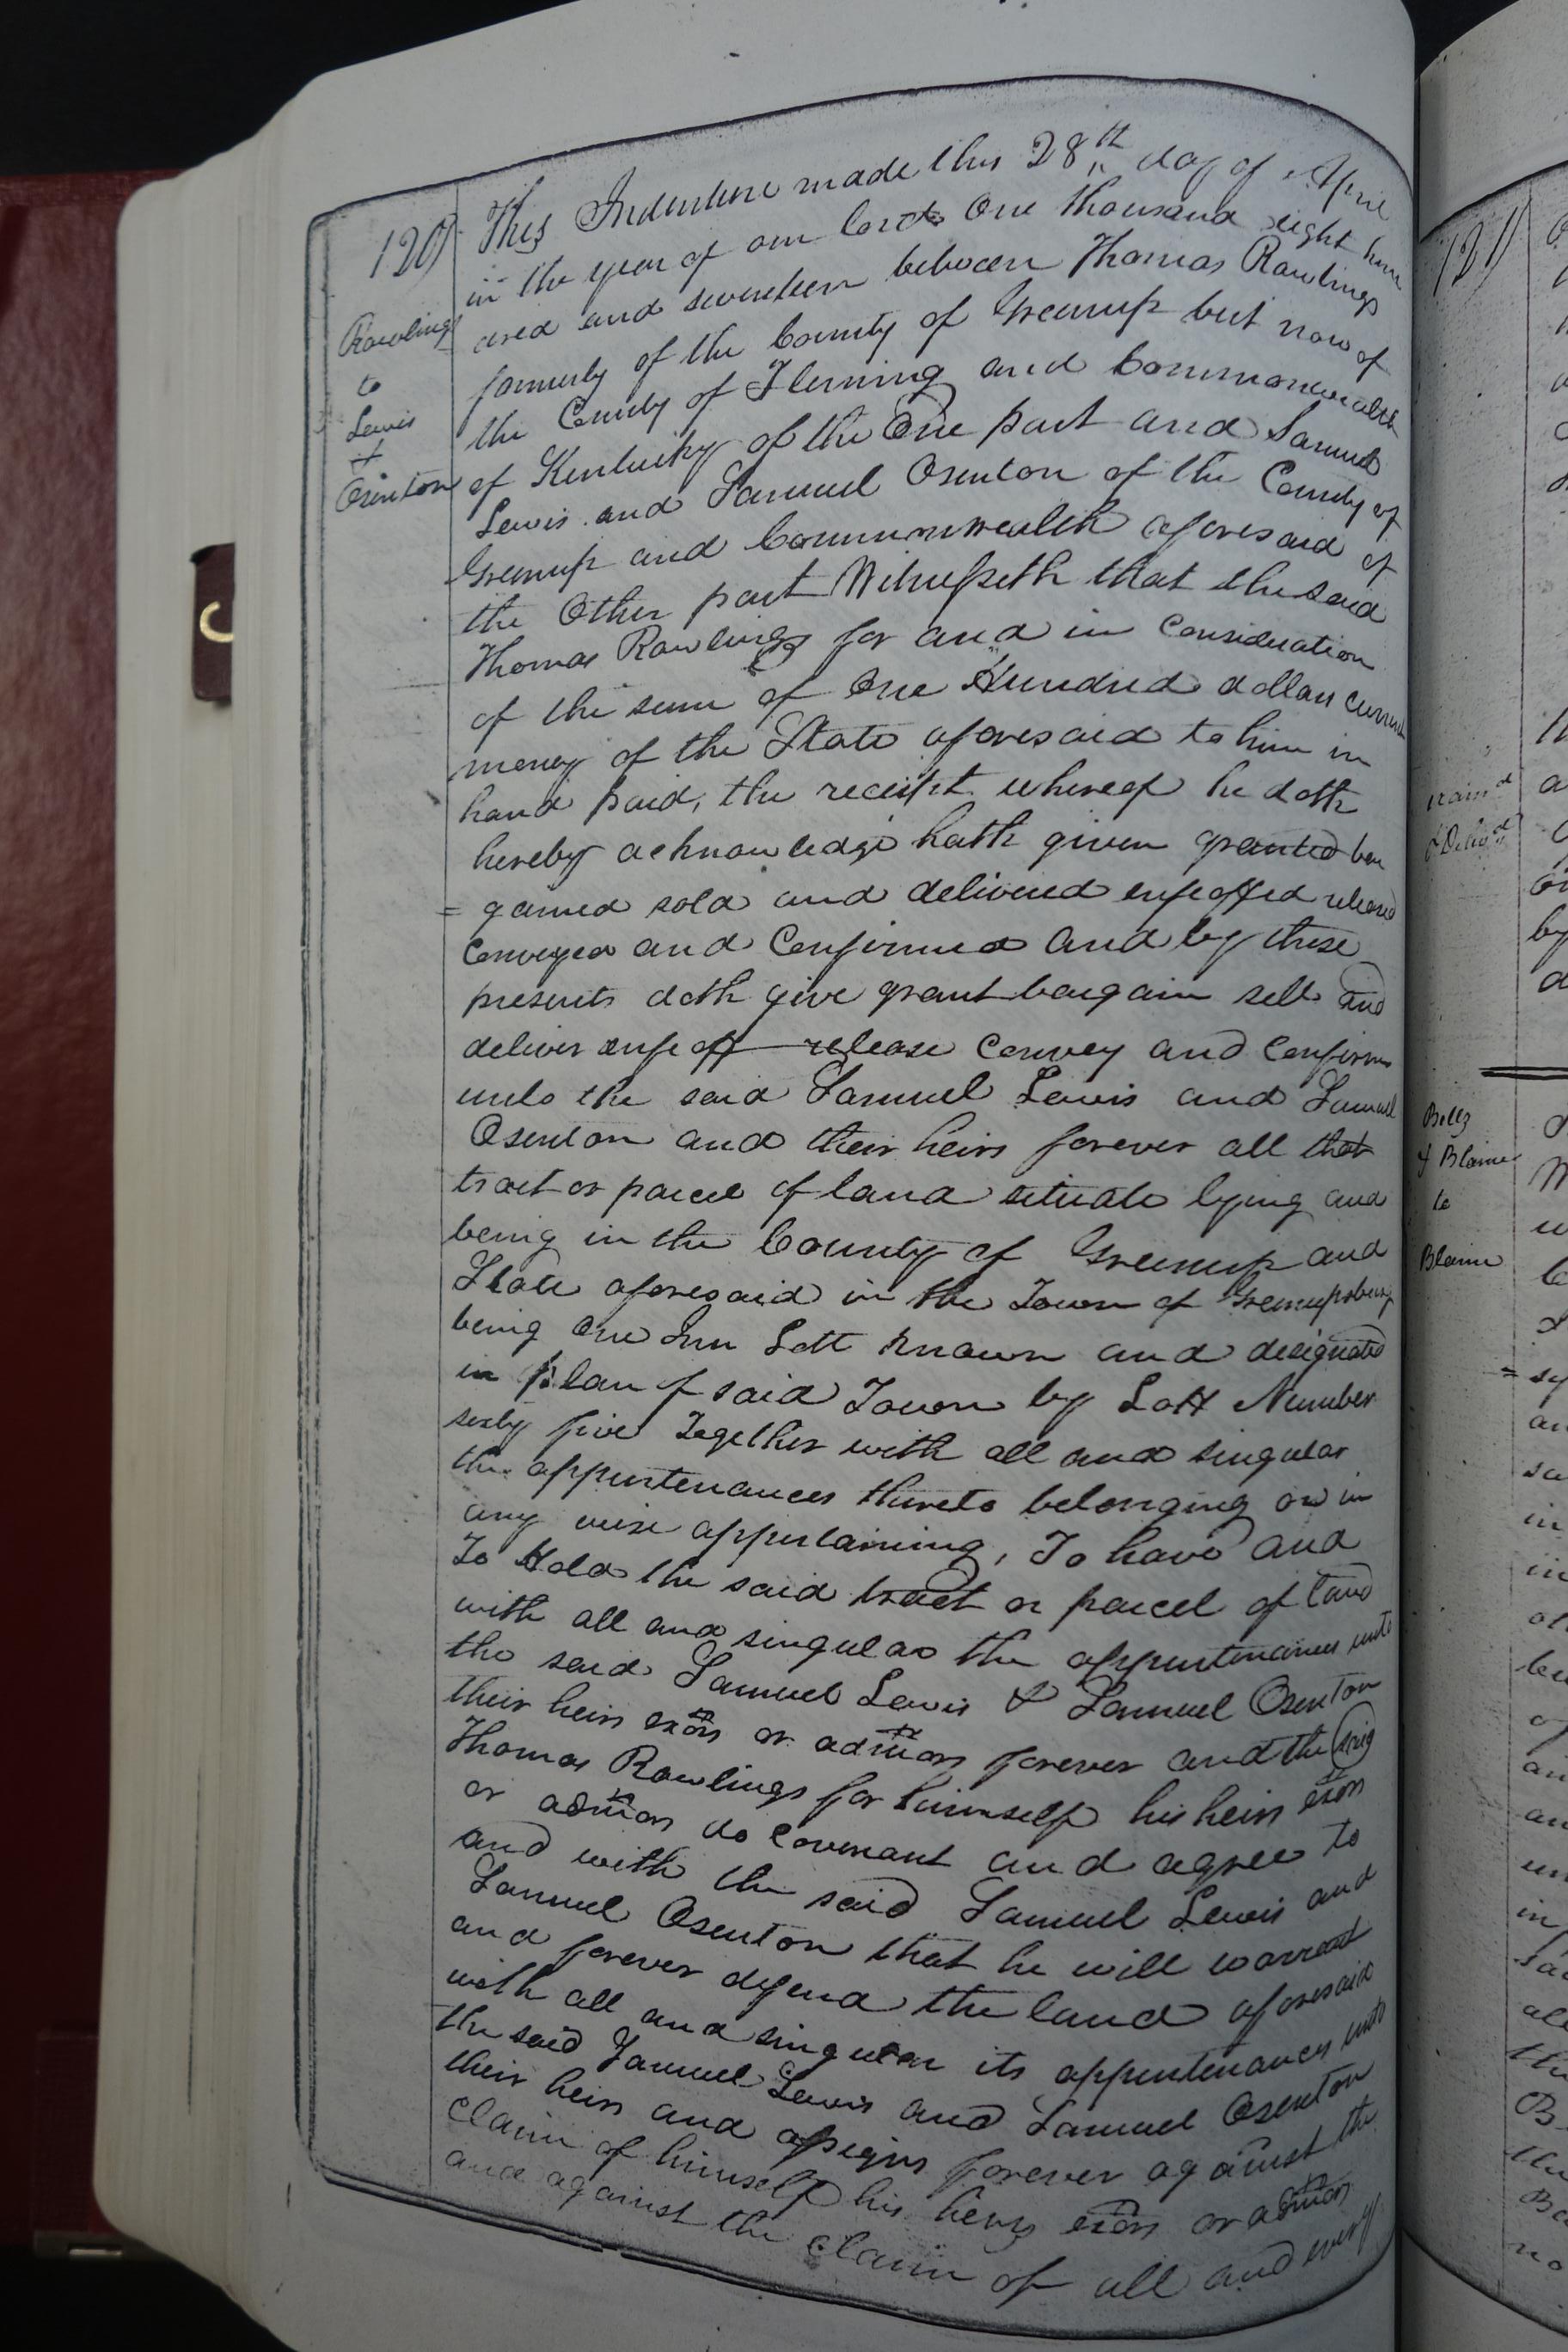 120
Rawlings
to
Lewis
&
Osenton
This Indenture made this 28th day of April
in the year of our lord One thousand eight hun
dred and seventeen between Thomas Rawlings
formerly of the County of Greenup but now of
the County of Fleming and Commonwealth
of Kentucky of the One part and Samuel
Lewis and Samuel Osenton of the County of
Greenup and Commonwealth aforesaid of
the Other part Witnesseth that the said
Thomas Rawlings for and in Consideration
of the sum of One Hundred dollars current
money of the State aforesaid to him in
hand paid, the receipt whereof he doth
hereby acknowledge hath given granted bar
= gained sold and delivered enfeoffed released
Conveyed and Confirmed and by these
presents doth give grant bargain sell and
deliver enfeoff release Convey and Confirm
unto the said Samuel Lewis and Samuel
Osenton and their heirs forever all that
tract or parcel of land situate lying and
being in the County of Greenup and
State aforesaid in the Town of Greenupsburg
being One Inn Lott known and designated
in plan of said Town by Lott Number
sixty five Together with all and singular
the appurtenances thereto belonging or in
any wise appertaining, To have and
To Hold the said tract or parcel of land
with all and singular the appurtenances unto
the said Samuel Lewis & Samuel Osenton
their heirs exōrs or admōrs forever and the said
Thomas Rawlings for himself his heirs exōrs
or admōrs do Covenant and agree to
and with the said Samuel Lewis and
Samuel Osenton that he will warrant
and forever defend the land aforesaid
with all and singular its appurtenances unto
the said Samuel Lewis and Samuel Osenton
their heirs and assigns forever against the
Claim of himself his heirs exōrs or admōrs
and against the Claim of all and every
121
Exam'd
& Deliv'd
Bellz
& Blaine
to
Blaine
by